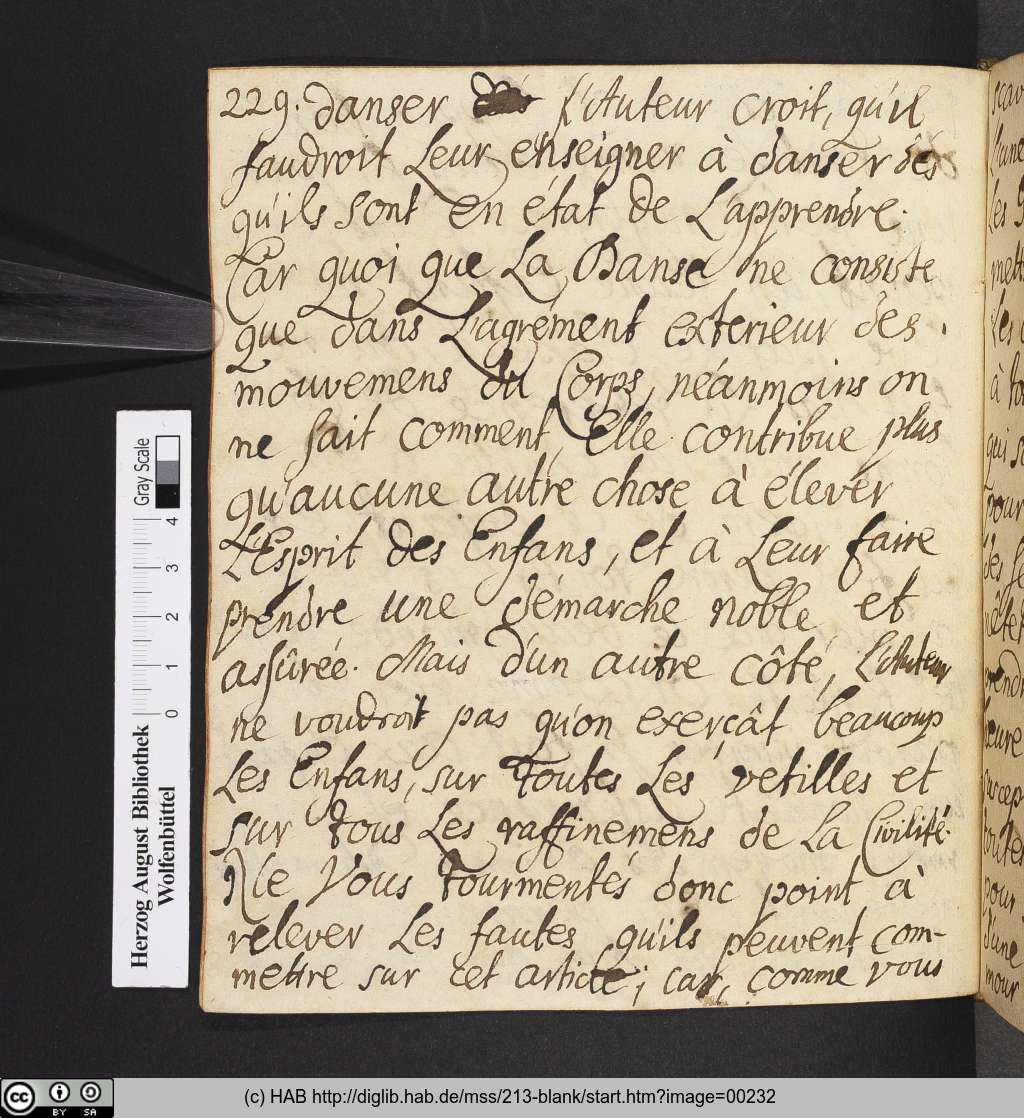 229. danser L'Auteur croit, qu'il
faudroit Leur enseigner à danser dés
qu'ils sont en état de L'apprendre.
Car quoi que La Danse ne consiste
que dans L'agrément exterieur des
mouvemens du Corps, néanmoins on
ne sait comment, Elle contribue plus
qu'aucune autre chose à élever
L'Esprit des Enfans, et à Leur faire
prendre une démarche noble et
assûrée. Mais d'un autre côté, L'Auteur
ne voudroit pas qu'on exerçât beaucoup
Les Enfans, sur toutes Les vetilles et
sur tous Les raffinemens de La Civilité.
Ne Vous tourmentés donc point à
relever Les fautes qu'ils peuvent com-
mettre sur cet article; car, comme vous
Herzog August Bibliothek
Wolfenbüttel
Gray Scale
0 1 2 3 4
cc BY SA
(c) HAB http://diglib.hab.de/mss/213-blank/start.htm?image=00232